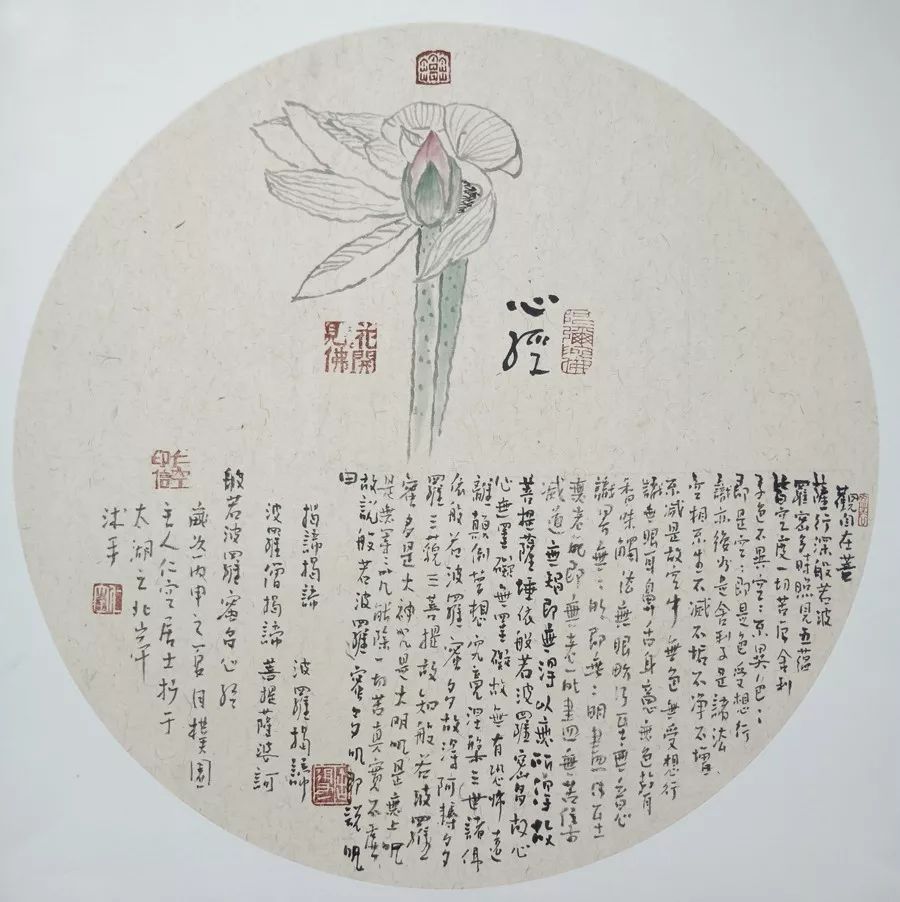 心經
花開見佛
觀自在菩
薩行深般若波
羅蜜多時照見五蘊
皆空度一切苦厄舍利
子色不異空〻不異色〻
即是空〻即是色受想行
識亦復如是舍利子是諸法
空相不生不滅不垢不淨不增
不減是故空中無色無受想行
識無眼耳鼻舌身意無色聲
香味觸法無眼界乃至無意
識界無
無老死亦無老死盡無苦集
滅道無智亦無得以無所得故
菩提薩埵依般若波羅蜜多故心
心無罣礙無罣礙故無有恐怖遠
離顛倒夢想究竟涅槃三世諸佛
依般若波羅蜜多故得阿耨多
羅三藐三菩提故知般若波羅
蜜多是大神咒是大明咒是無上咒
是無等等咒能除一切苦真實不虛
故說般若波羅蜜多咒即說咒
曰
揭諦揭諦 波羅揭諦
波羅僧揭諦 菩提薩婆訶
般若波羅蜜多心經
歲次丙申之夏月撲園
主人仁空居士抄于
太湖之北岸
沐手
仁空印信